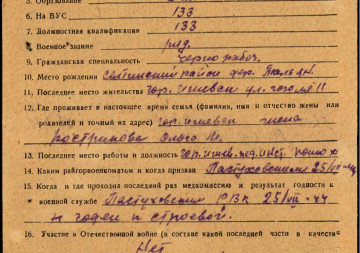 5. Образование
6. На ВУС 133
7. Должностная квалификация 133
8. Военное звание ряд.
9. Гражданская специальность чернорабоч.
10. Место рождения район дер.
11. Последнее место жительства гор. Ижевск ул. Гоголя 11
12. Где проживает в настоящее время семья (фамилия, имя и отчество жены или
родителей и точный их адрес) гор. Ижевск жена
Костринова Ольга И.
13. Последнее место работы и должность гор. Ижев. мед. инст. конюх
14. Каким райгорвоенкоматом и когда призван Пастуховским 25/VII-44
15. Когда и где проходил последний раз медкомиссию и результат годности к
военной службе Пастуховский РВК 25/VII-44
годен к строевой.
16. Участие в Отечественной войне (в составе какой последней части в качестве
Нет